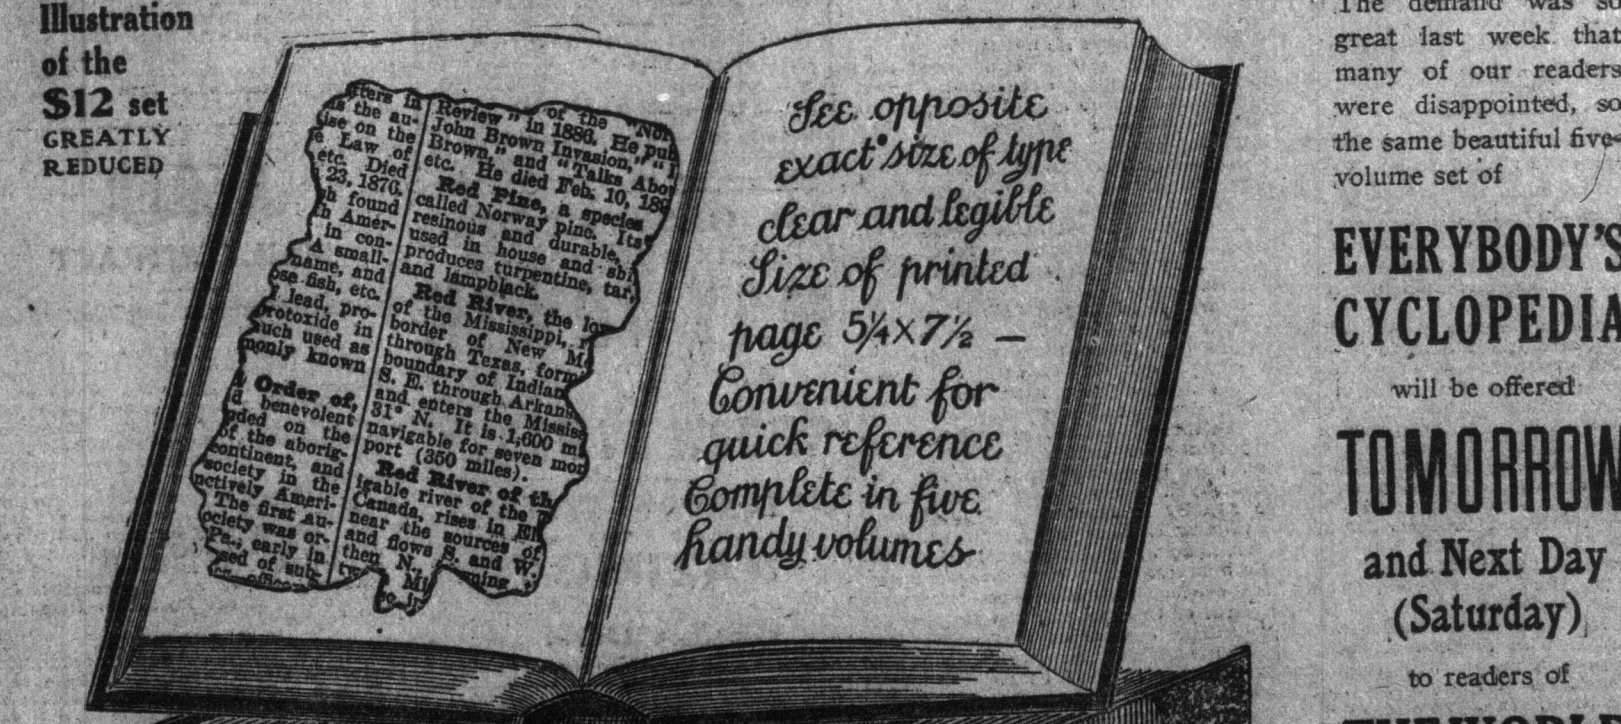 Illustration
of the
$12 set
GREATLY
REDUCED
in
is the au-
on the
Law of
etc. Died
23, 1876.
found
Amer-
in con-
A small-
name, and
fish, etc.
lead, pro-
protoxide in
such used as
monly known
Order of,
benevolent
on the
of the aborig-
continent, and
society in the
Ameri-
The first au-
was or-
Pa., early in
of sub-
Review" in 1886. He
John Brown Invasion,"
Brown," and "Talks
etc. He died Feb. 10,
Red Pine, a species
called Norway pine. Its
resinous and durable,
used in house and
produces turpentine, tar,
and lampblack.
Red River, the
of the Mississippi,
border of New
through Texas,
boundary of
S. E. through
and enters the
31° N. It is 1,600
navigable for seven
port (350 miles).
Red River of
igable river of the
Canada, rises in
near the sources of
and flows S. and W.
then N.,
See opposite
exact size of type
clear and legible
Size of printed
page 5¼ X 7½ —
Convenient for
quick reference
Complete in five
handy volumes
The demand was so
great last week that
many of our readers
were disappointed, so
the same beautiful five-
volume set of
EVERYBODY'S
CYCLOPEDIA
will be offered
TOMORROW
and Next Day
(Saturday)
to readers of